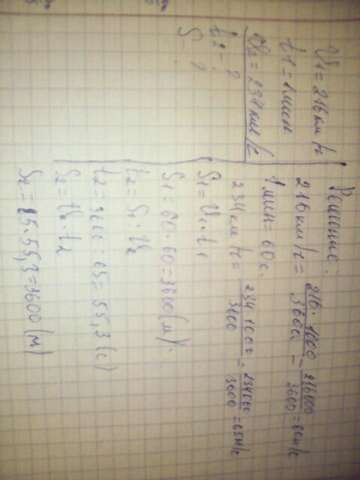 V1 = 216 км/ч
t1 = 1 мин
V2 = 234 км/ч
t2 - ?
S - ?
Решение:
216 км/ч = 216·1000/3600 = 216000/3600 = 60 м/с
1 мин = 60 с.
234 км/ч = 234·1000/3600 = 234000/3600 = 65 м/с
S1 = V1·t1
S1 = 60·60 = 3600 (м)
t2 = S1 : V2
t2 = 3600 : 65 = 55,3 (с)
S2 = V2·t2
S2 = 65·55,3 = 3600 (м)